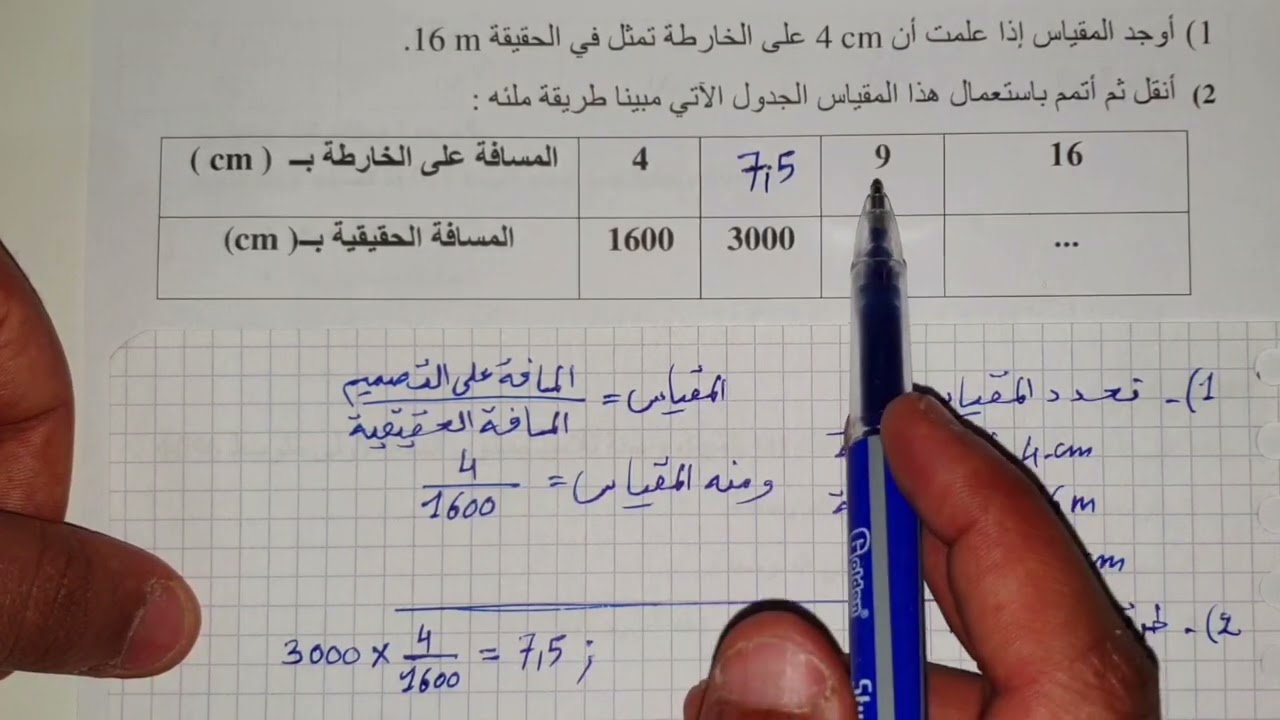 1) أوجد المقياس إذا علمت أن 4 cm على الخارطة تمثل في الحقيقة 16 m.
2) أنقل ثم أتمم باستعمال هذا المقياس الجدول الآتي مبينا طريقة ملئه :
المسافة على الخارطة بـ ( cm ) 4 7,5 9 16
المسافة الحقيقية بـ( cm) 1600 3000 ...
1)- تحدد المقياس
المقياس = المسافة على التصميم / المسافة الحقيقية
4 cm
ومنه المقياس = 4 / 1600
m
m
2)-
3000 × 4 / 1600 = 7,5 ;